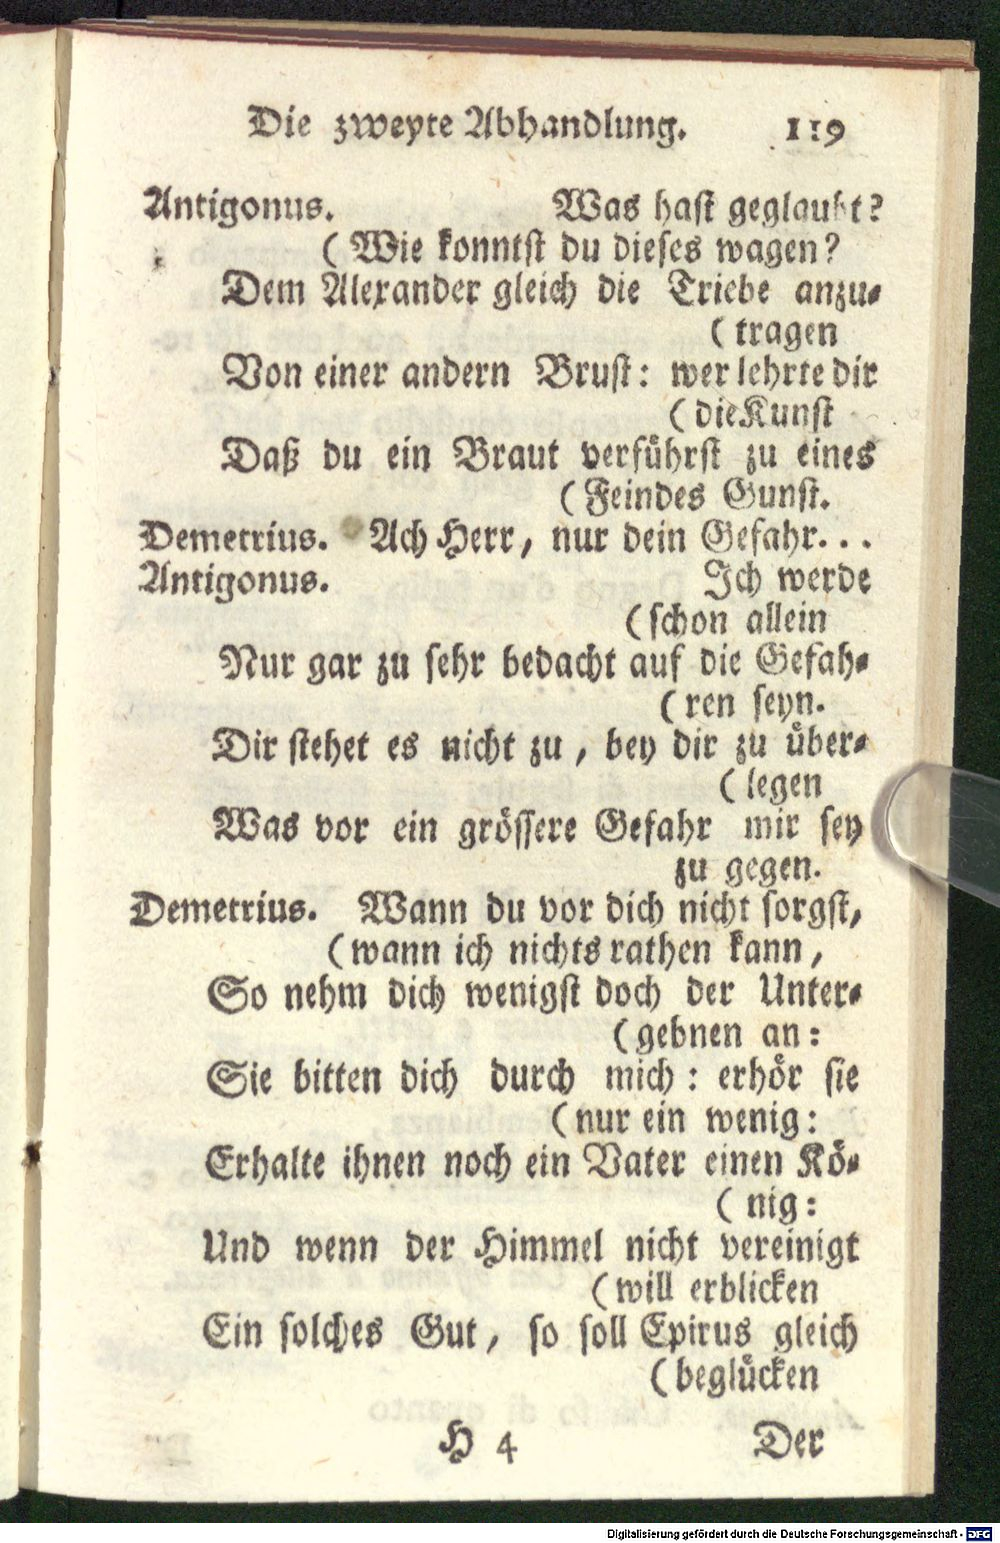 Die zweyte Abhandlung. 119
Antigonus. Was hast geglaubt?
(Wie konntst du dieses wagen?
Dem Alexander gleich die Triebe anzu-
(tragen
Von einer andern Brust: wer lehrte dir
(die Kunst
Daß du ein Braut verführst zu eines
(Feindes Gunst.
Demetrius. Ach Herr, nur dein Gefahr...
Antigonus. Ich werde
(schon allein
Nur gar zu sehr bedacht auf die Gefah-
(ren seyn.
Dir stehet es nicht zu, bey dir zu über-
(legen
Was vor ein grössere Gefahr mir sey
zu gegen.
Demetrius. Wann du vor dich nicht sorgst,
(wann ich nichts rathen kann,
So nehm dich wenigst doch der Unter-
(gebnen an:
Sie bitten dich durch mich: erhör sie
(nur ein wenig:
Erhalte ihnen noch ein Vater einen Kö-
(nig:
Und wenn der Himmel nicht vereinigt
(will erblicken
Ein solches Gut, so soll Epirus gleich
(beglücken
H 4 Der
Digitalisierung gefördert durch die Deutsche Forschungsgemeinschaft - DFG